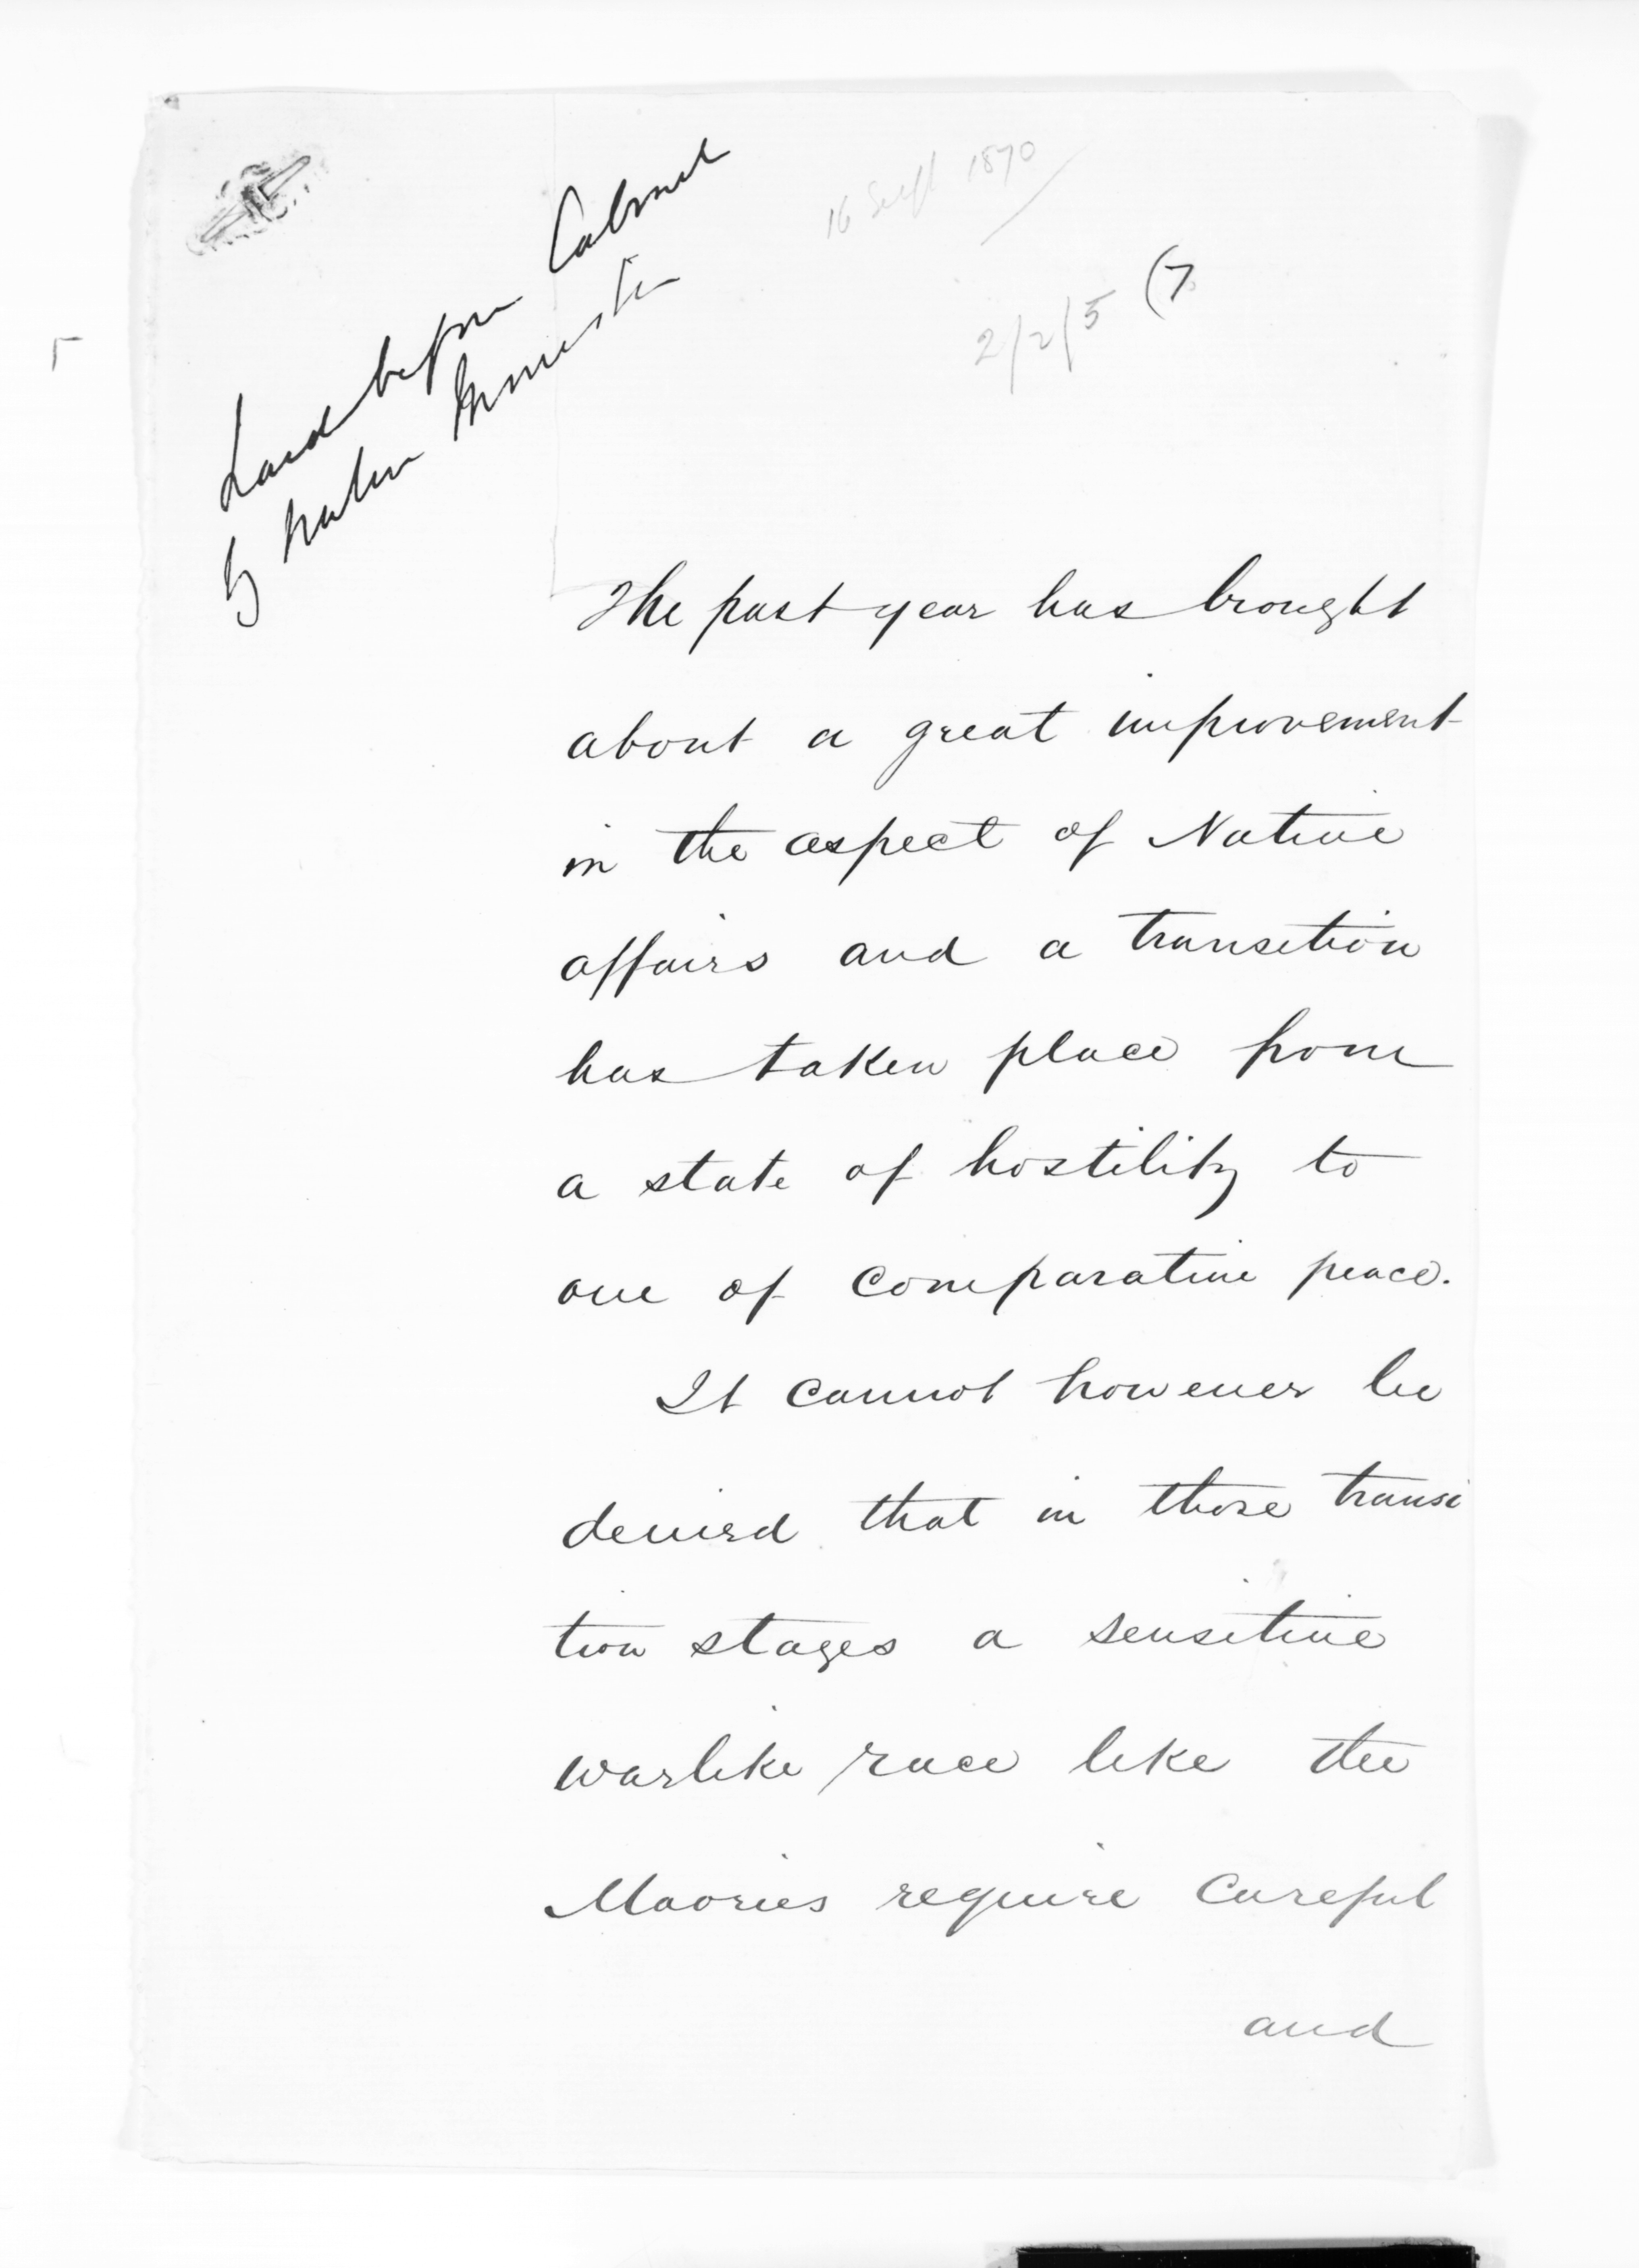 Laid before Cabinet
by Native Minister
16 Sept 1870
2/2/5 (7.
The past year has brought
about a great improvement
in the aspect of Native
affairs and a transition
has taken place from
a state of hostility to
one of comparative peace.
It cannot however be
denied that in those transi
tion stages a sensitive
warlike race like the
Maories require careful
and